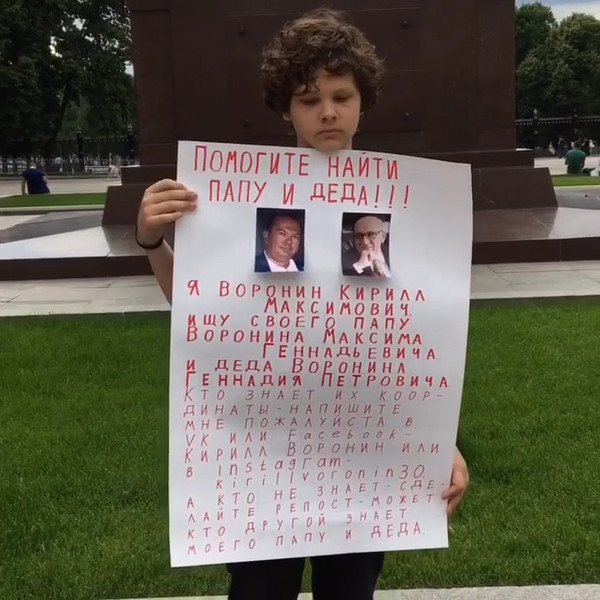 ПОМОГИТЕ НАЙТИ
ПАПУ И ДЕДА!!!
Я ВОРОНИН КИРИЛЛ
МАКСИМОВИЧ,
ИЩУ СВОЕГО ПАПУ
ВОРОНИНА МАКСИМА
ГЕННАДЬЕВИЧА
И ДЕДА ВОРОНИНА
ГЕННАДИЯ ПЕТРОВИЧА
КТО ЗНАЕТ ИХ КООР-
ДИНАТЫ-НАПИШИТЕ
МНЕ ПОЖАЛУЙСТА В
VK ИЛИ Facebook-
КИРИЛЛ ВОРОНИН ИЛИ
В Instagram-
kirillvoronin30.
А КТО НЕ ЗНАЕТ-СДЕ-
ЛАЙТЕ РЕПОСТ-МОЖЕТ
КТО ДРУГОЙ ЗНАЕТ
МОЕГО ПАПУ И ДЕДА.